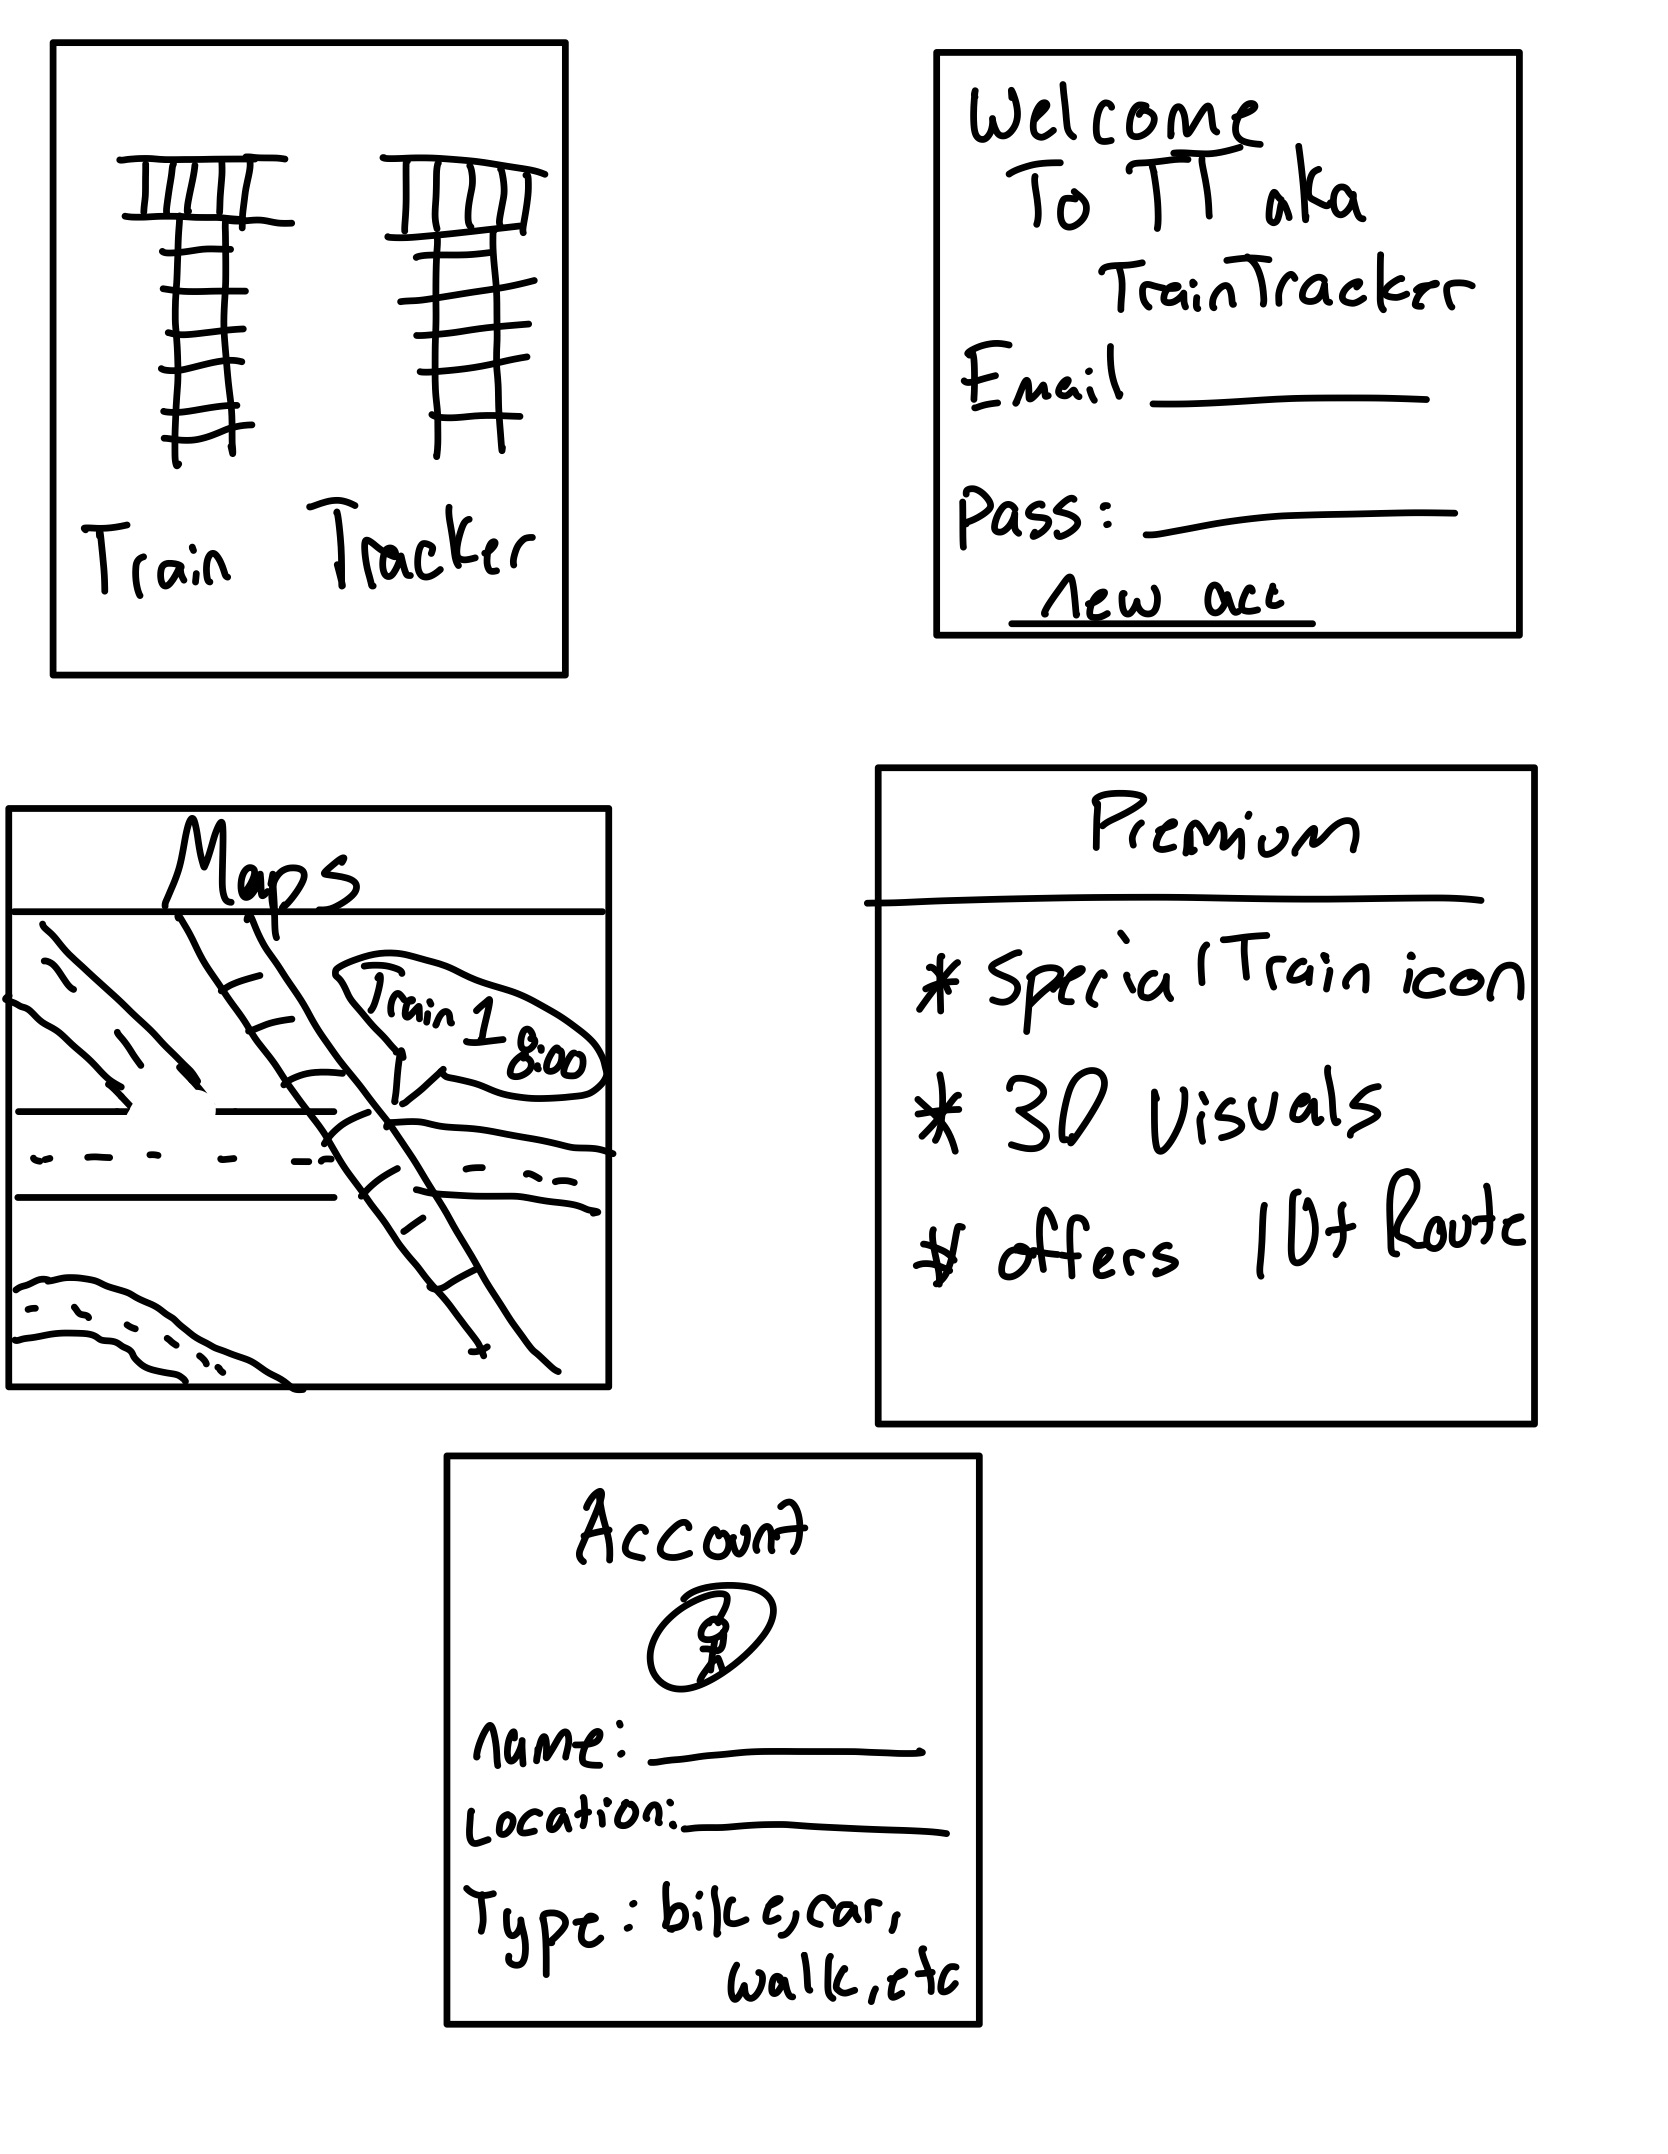 Train Tracker
Welcome
To TT aka
TrainTracker
Email
Pass:
New acc
Maps
Train 1
8:00
Premium
* Special Train icon
* 3D Visuals
* offers 10+ Route
Account
name:
Location:
Type: bike, car,
walk, etc